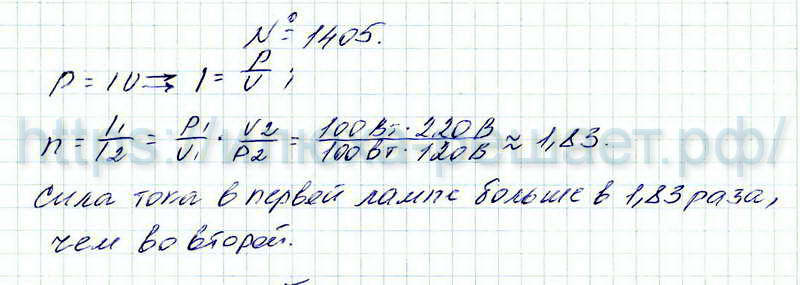 № 1405.
P = IU ⇒ I = P/U ;
n = I₁/I₂ = P₁/U₁ · U₂/P₂ = 100 Вт · 220 В / 100 Вт · 120 В ≈ 1,83.
Сила тока в первой лампе больше в 1,83 раза,
чем во второй.